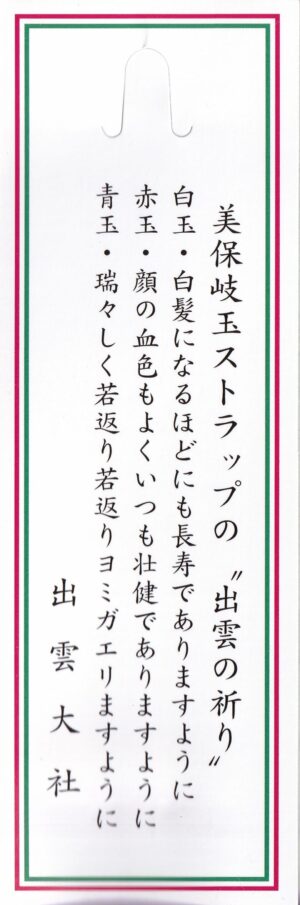 美保岐玉ストラップの〝出雲の祈り〟
白玉・白髪になるほどにも長寿でありますように
赤玉・顔の血色もよくいつも壮健でありますように
青玉・瑞々しく若返り若返りヨミガエリますように
出雲大社